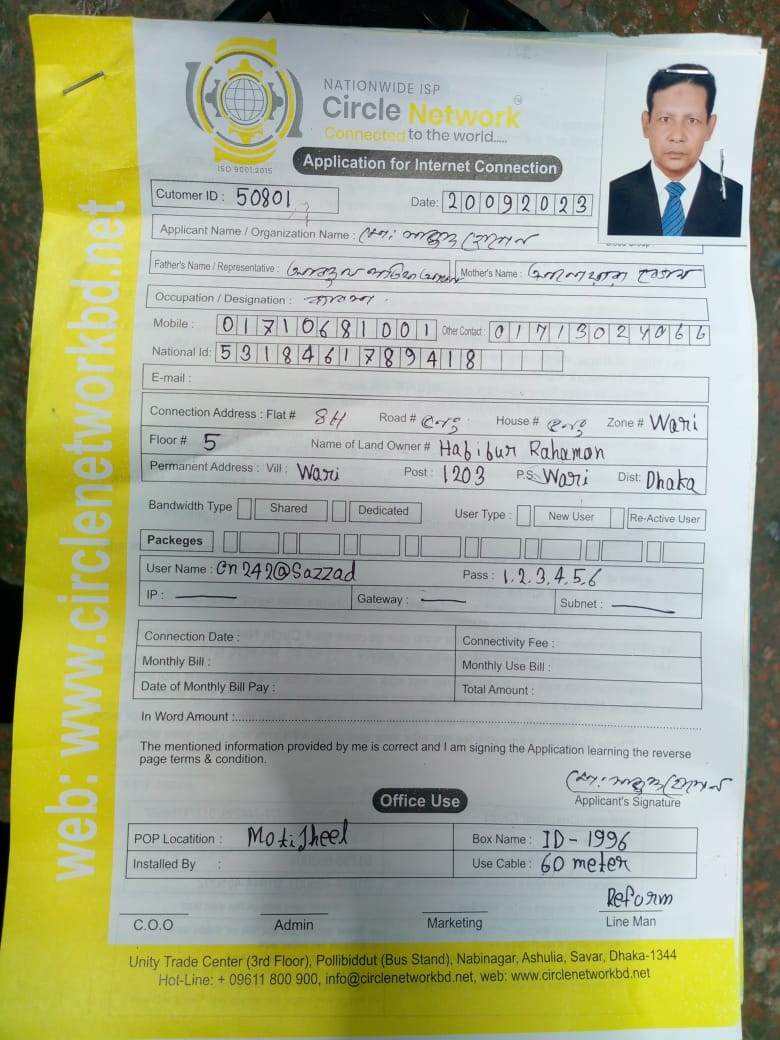 NATIONWIDE ISP
Circle Network
Connected to the world.....
ISO 9001:2015
Application for Internet Connection
Cutomer ID : 50801
Date: 20092023
Applicant Name / Organization Name : মো:
Father's Name / Representative :
Mother's Name :
Occupation / Designation :
Mobile : 01710681001 Other Contact : 01713024066
National Id: 5318461789418
E-mail :
Connection Address : Flat # 8H Road # House # Zone # Wari
Floor # 5 Name of Land Owner # Habibur Rahaman
Permanent Address : Vill : Wari Post : 1203 P.S. Wari Dist: Dhaka
Bandwidth Type Shared Dedicated User Type : New User Re-Active User
Packeges
User Name : Cn242@Sazzad Pass : 1,2,3,4,5,6
IP : Gateway : Subnet :
Connection Date : Connectivity Fee :
Monthly Bill : Monthly Use Bill :
Date of Monthly Bill Pay : Total Amount :
In Word Amount :
The mentioned information provided by me is correct and I am signing the Application learning the reverse
page terms & condition.
মো:
Applicant's Signature
Office Use
POP Locatition : Motijheel Box Name : ID-1996
Installed By : Use Cable : 60 meter
Reform
C.O.O Admin Marketing Line Man
Unity Trade Center (3rd Floor), Pollibiddut (Bus Stand), Nabinagar, Ashulia, Savar, Dhaka-1344
Hot-Line: + 09611 800 900, info@circlenetworkbd.net, web: www.circlenetworkbd.net
web: www.circlenetworkbd.net